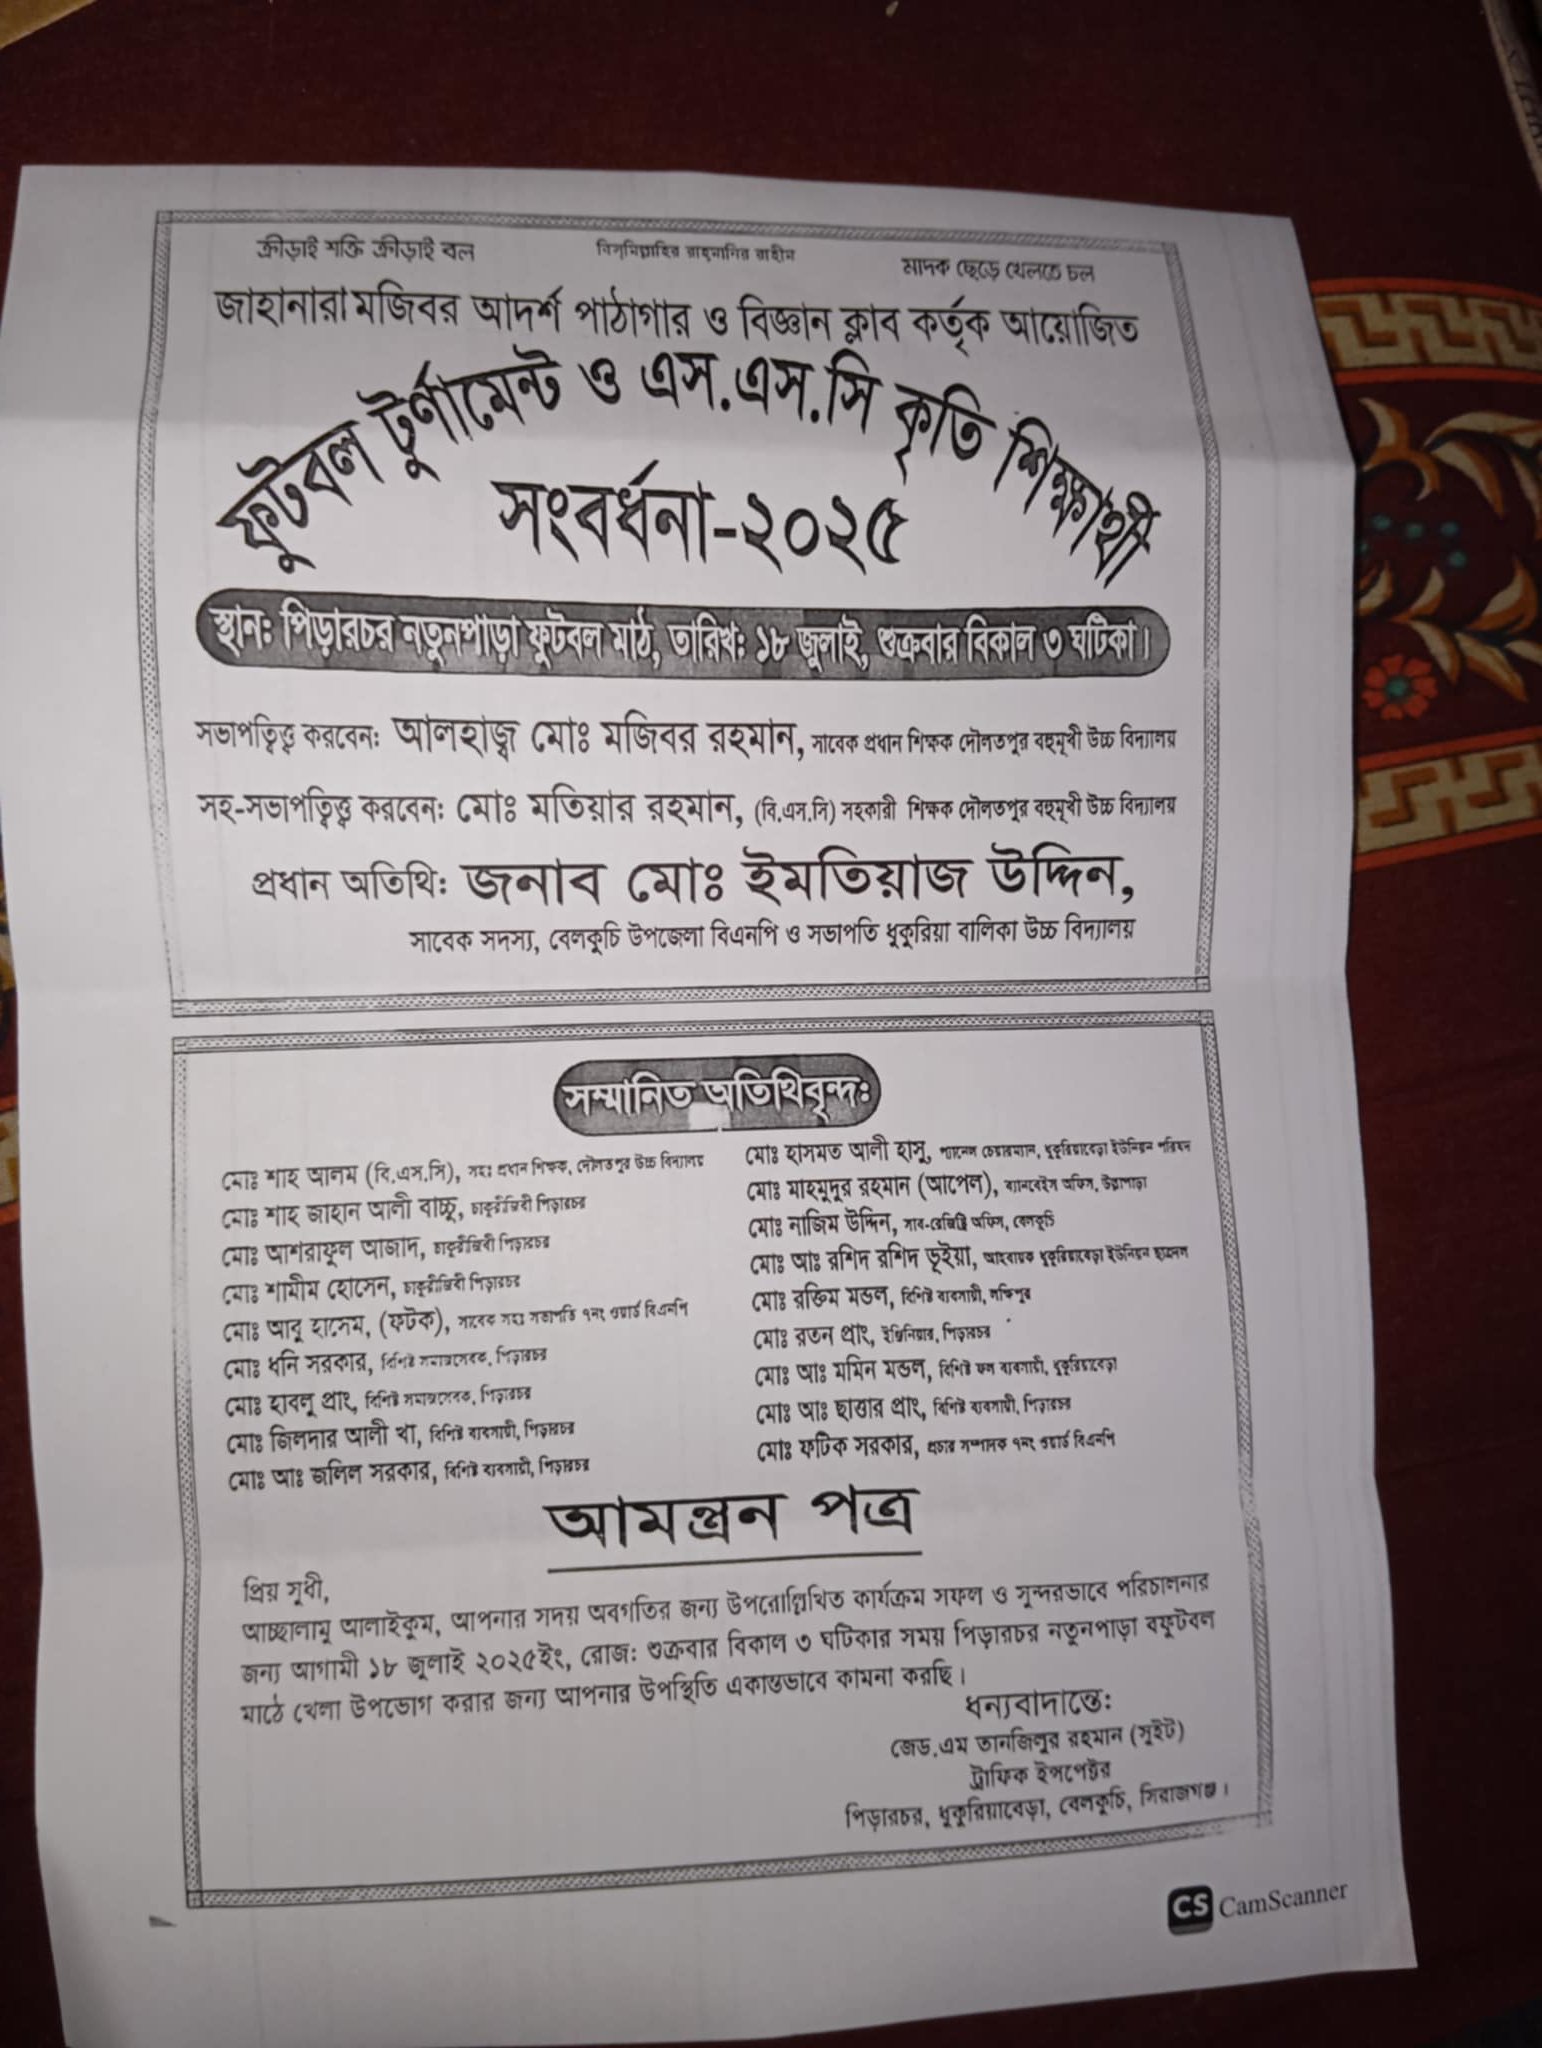 ক্রীড়াই শক্তি ক্রীড়াই বল
বিস্‌মিল্লাহির রাহমানির রাহীম
মাদক ছেড়ে খেলতে চল
জাহানারা মজিবর আদর্শ পাঠাগার ও বিজ্ঞান ক্লাব কর্তৃক আয়োজিত
ফুটবল টুর্ণামেন্ট ও এস.এস.সি কৃতি শিক্ষার্থী
সংবর্ধনা-২০২৫
স্থান: পিড়ারচর নতুনপাড়া ফুটবল মাঠ, তারিখ: ১৮ জুলাই, শুক্রবার বিকাল ৩ ঘটিকা।
সভাপত্বিত্ত্ব করবেন: আলহাজ্ব মোঃ মজিবর রহমান, সাবেক প্রধান শিক্ষক দৌলতপুর বহুমূখী উচ্চ বিদ্যালয়
সহ-সভাপত্বিত্ত্ব করবেন: মোঃ মতিয়ার রহমান, (বি.এস.সি) সহকারী শিক্ষক দৌলতপুর বহুমূখী উচ্চ বিদ্যালয়
প্রধান অতিথি: জনাব মোঃ ইমতিয়াজ উদ্দিন,
সাবেক সদস্য, বেলকুচি উপজেলা বিএনপি ও সভাপতি ধুকুরিয়া বালিকা উচ্চ বিদ্যালয়
সম্মানিত অতিথিবৃন্দ:
মোঃ শাহ আলম (বি.এস.সি), সহঃ প্রধান শিক্ষক, দৌলতপুর উচ্চ বিদ্যালয়
মোঃ শাহ জাহান আলী বাচ্চু, চাকুরীজিবী পিড়ারচর
মোঃ আশরাফুল আজাদ, চাকুরীজিবী পিড়ারচর
মোঃ শামীম হোসেন, চাকুরীজিবী পিড়ারচর
মোঃ আবু হাসেম, (ফটক), সাবেক সহঃ সভাপতি ৭নং ওয়ার্ড বিএনপি
মোঃ ধনি সরকার, বিশিষ্ট সমাজসেবক, পিড়ারচর
মোঃ হাবলু প্রাং, বিশিষ্ট সমাজসেবক, পিড়ারচর
মোঃ জিলদার আলী খাঁ, বিশিষ্ট ব্যবসায়ী, পিড়ারচর
মোঃ আঃ জলিল সরকার, বিশিষ্ট ব্যবসায়ী, পিড়ারচর
মোঃ হাসমত আলী হাসু, প্যানেল চেয়ারম্যান, ধুকুরিয়াবেড়া ইউনিয়ন পরিষদ
মোঃ মাহমুদুর রহমান (আপেল), ব্যানবেইস অফিস, উল্লাপাড়া
মোঃ নাজিম উদ্দিন, সাব-রেজিষ্ট্রি অফিস, বেলকুচি
মোঃ আঃ রশিদ রশিদ ভূইয়া, আহবায়ক ধুকুরিয়াবেড়া ইউনিয়ন ছাত্রদল
মোঃ রক্তিম মন্ডল, বিশিষ্ট ব্যবসায়ী,
মোঃ রতন প্রাং, ইঞ্জিনিয়ার, পিড়ারচর
মোঃ আঃ মমিন মন্ডল, বিশিষ্ট ফল ব্যবসায়ী, ধুকুরিয়াবেড়া
মোঃ আঃ ছাত্তার প্রাং, বিশিষ্ট ব্যবসায়ী, পিড়ারচর
মোঃ ফটিক সরকার, প্রচার সম্পাদক ৭নং ওয়ার্ড বিএনপি
আমন্ত্রন পত্র
প্রিয় সুধী,
আচ্ছালামু আলাইকুম, আপনার সদয় অবগতির জন্য উপরোল্লিখিত কার্যক্রম সফল ও সুন্দরভাবে পরিচালনার
জন্য আগামী ১৮ জুলাই ২০২৫ইং, রোজ: শুক্রবার বিকাল ৩ ঘটিকার সময় পিড়ারচর নতুনপাড়া বফুটবল
মাঠে খেলা উপভোগ করার জন্য আপনার উপস্থিতি একান্তভাবে কামনা করছি।
ধন্যবাদান্তে:
জেড.এম তানজিলুর রহমান (সুইট)
ট্রাফিক ইন্সপেক্টর
পিড়ারচর, ধুকুরিয়াবেড়া, বেলকুচি, সিরাজগঞ্জ।
CS CamScanner